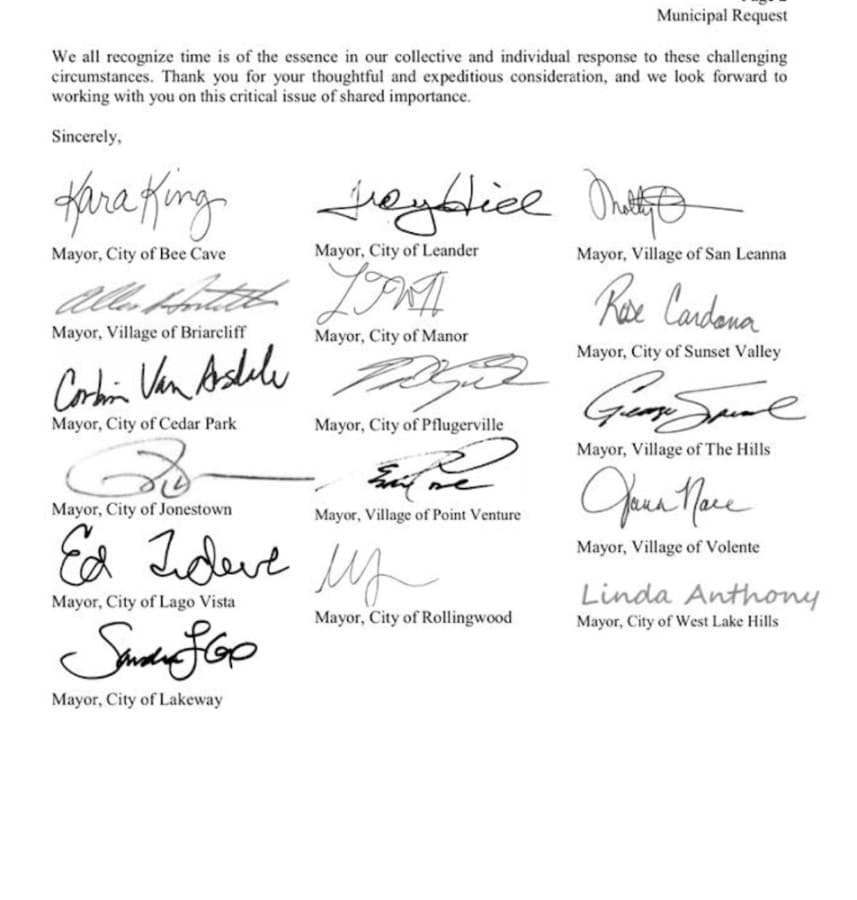 Municipal Request
We all recognize time is of the essence in our collective and individual response to these challenging
circumstances. Thank you for your thoughtful and expeditious consideration, and we look forward to
working with you on this critical issue of shared importance.
Sincerely,
Kara King
Mayor, City of Bee Cave
Mayor, Village of Briarcliff
Corbin Van Arsdale
Mayor, City of Cedar Park
Mayor, City of Jonestown
Ed Tidwell
Mayor, City of Lago Vista
Mayor, City of Lakeway
Troy Hill
Mayor, City of Leander
Mayor, City of Manor
Mayor, City of Pflugerville
Mayor, Village of Point Venture
Mayor, City of Rollingwood
Molly
Mayor, Village of San Leanna
Rose Cardona
Mayor, City of Sunset Valley
George
Mayor, Village of The Hills
Jana Nace
Mayor, Village of Volente
Linda Anthony
Mayor, City of West Lake Hills